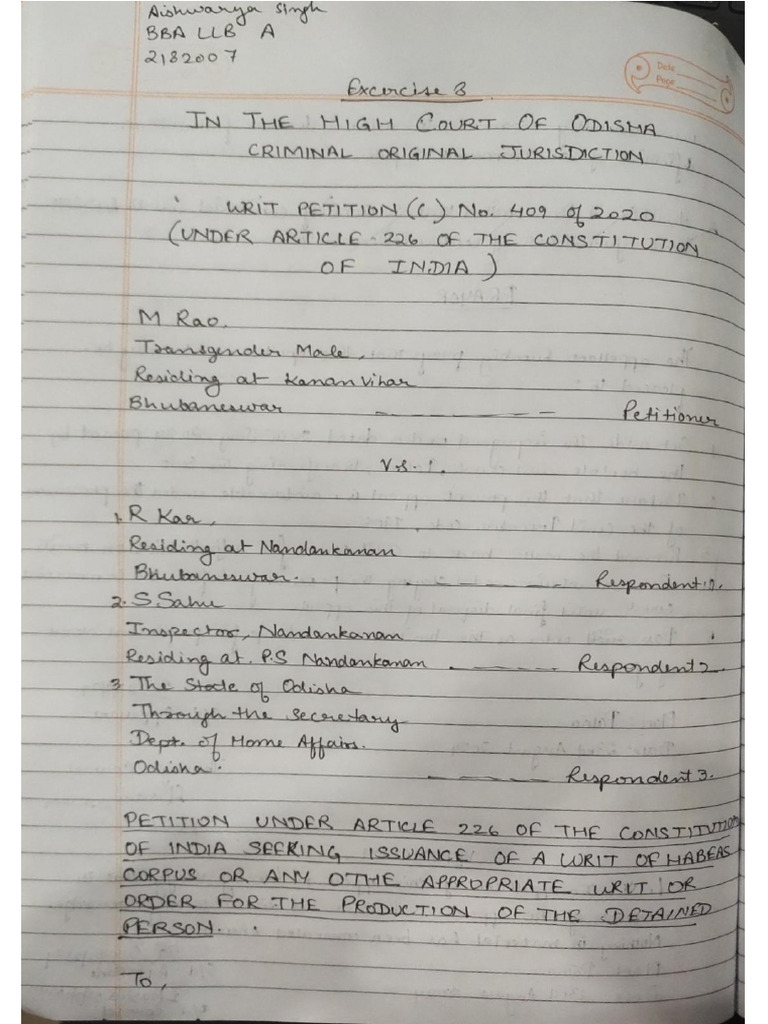 Aishwarya Singh
BBA LLB A
2182007
Date
Page
Excercise 8
IN THE HIGH COURT OF ODISHA
CRIMINAL ORIGINAL JURISDICTION
WRIT PETITION (C) No. 409 of 2020
(UNDER ARTICLE 226 OF THE CONSTITUTION
OF INDIA)
M Rao.
Transgender Male,
Residing at Kanan Vihar
Bhubaneswar ------- Petitioner
V.s.
1. R Kar,
Residing at Nandankanan
Bhubaneswar. ------ Respondent 1.
2. S Sahu
Inspector, Nandankanan
Residing at. P.S Nandankanan ----- Respondent 2.
3 The State of Odisha
Through the secretary
Dept. of Home Affairs.
Odisha. ----- Respondent 3.
PETITION UNDER ARTICLE 226 OF THE CONSTITUTION
OF INDIA SEEKING ISSUANCE OF A WRIT OF HABEAS
CORPUS OR ANY OTHE APPROPRIATE WRIT OR
ORDER FOR THE PRODUCTION OF THE DETAINED
PERSON.
To,